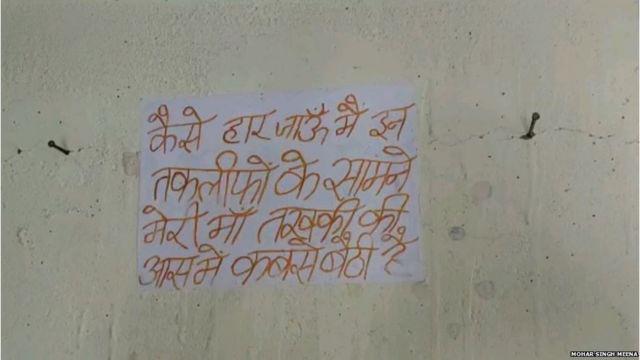 कैसे हार जाऊँ मैं इन
तकलीफों के सामने
मेरी माँ तरक्की की
आस में कबसे बैठी है
MOHAR SINGH MEENA